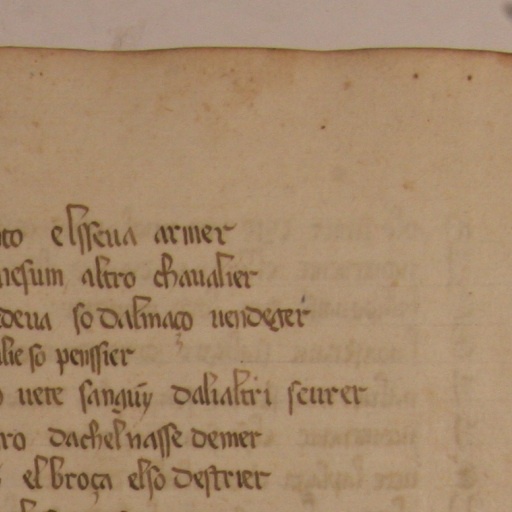 elsseua armer
nesum altro chaualier
deua so dalmaço uendeger
lie so penssier
uete sanguȳ dalialtri scurer
ro dachel nasse demer
el broça elso destrier